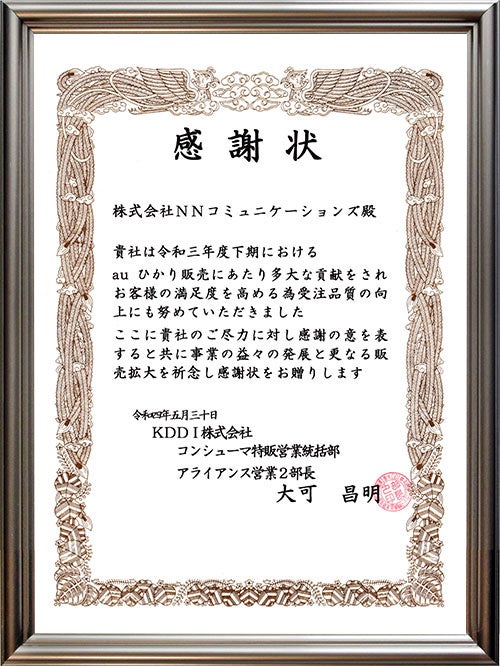 感謝状
株式会社NNコミュニケーションズ殿
貴社は令和三年度下期における
au ひかり販売にあたり多大な貢献をされ
お客様の満足度を高める為受注品質の向
上にも努めていただきました
ここに貴社のご尽力に対し感謝の意を表
すると共に事業の益々の発展と更なる販
売拡大を祈念し感謝状をお贈りします
令和四年五月三十日
KDDI株式会社
コンシューマ特販営業統括部
アライアンス営業2部長
大可 昌明